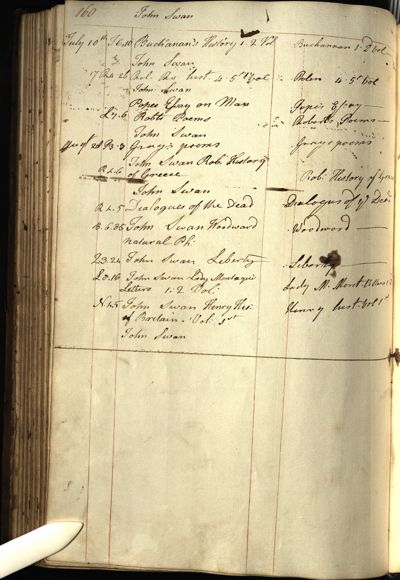 160 John Swan
July 10th T.6.10 Buchanan's History 1. 2 Vol Buchanan 1-2 Vol
John Swan
17 Rol. hist 4. 5th Vol Rolen 4. 5t Vol
John Swan
Popes Esay on Man Pope's Esay
L.7.6 Robts Poems Robert's Poems
John Swan
Augt Grays poems Grays poems
John Swan Rob: History
R.L.6 of Greece Rob: History of Greece
John Swan
R.L.5 Dialogues of the Dead Dialogues of ye Dead
B.6.35 John Swan Woodward Woodword
natural Ph:
L.3.24 John Swan Leberty Leberty
L.8.16 John Swan Lady Montague Lady M. Mont
Letters 1. 2 Vol:
N.1.5 John Swan Henry His: Henry hist Vol 1st
of Britain. Vol: 1st
John Swan